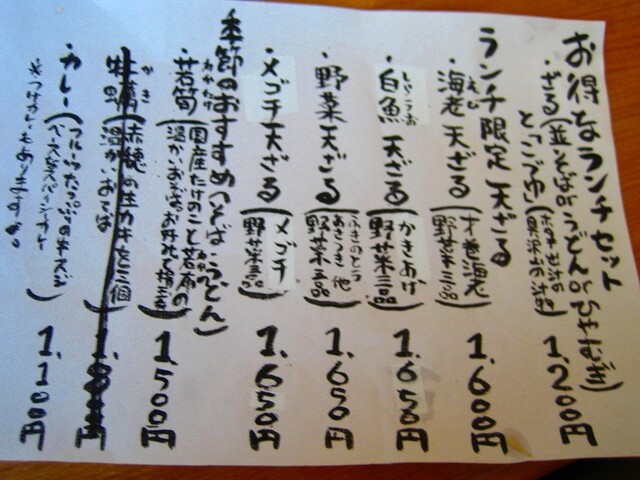 お得なランチセット
・ざる(並そばorうどんorひやむぎ)
と「ご飯」 1,200円
ランチ限定 天ざる
・海老天ざる(才巻海老 野菜三品) 1,600円
えび
・白魚天ざる(かきあげ 野菜三品) 1,650円
しらうお
・野菜天ざる(ふきのとう 他 野菜三品) 1,650円
・メゴチ天ざる(メゴチ 野菜三品) 1,650円
季節のおすすめ(そば・うどん)
・若筍(国産たけのこと若布の 温かいおそば 1,500円
わかたけ
牡蠣(赤穂の生カキを三個 温かいおそば
かき
・カレー(フルーツたっぷりの牛スジ 1,100円
※つけカレーもあります。